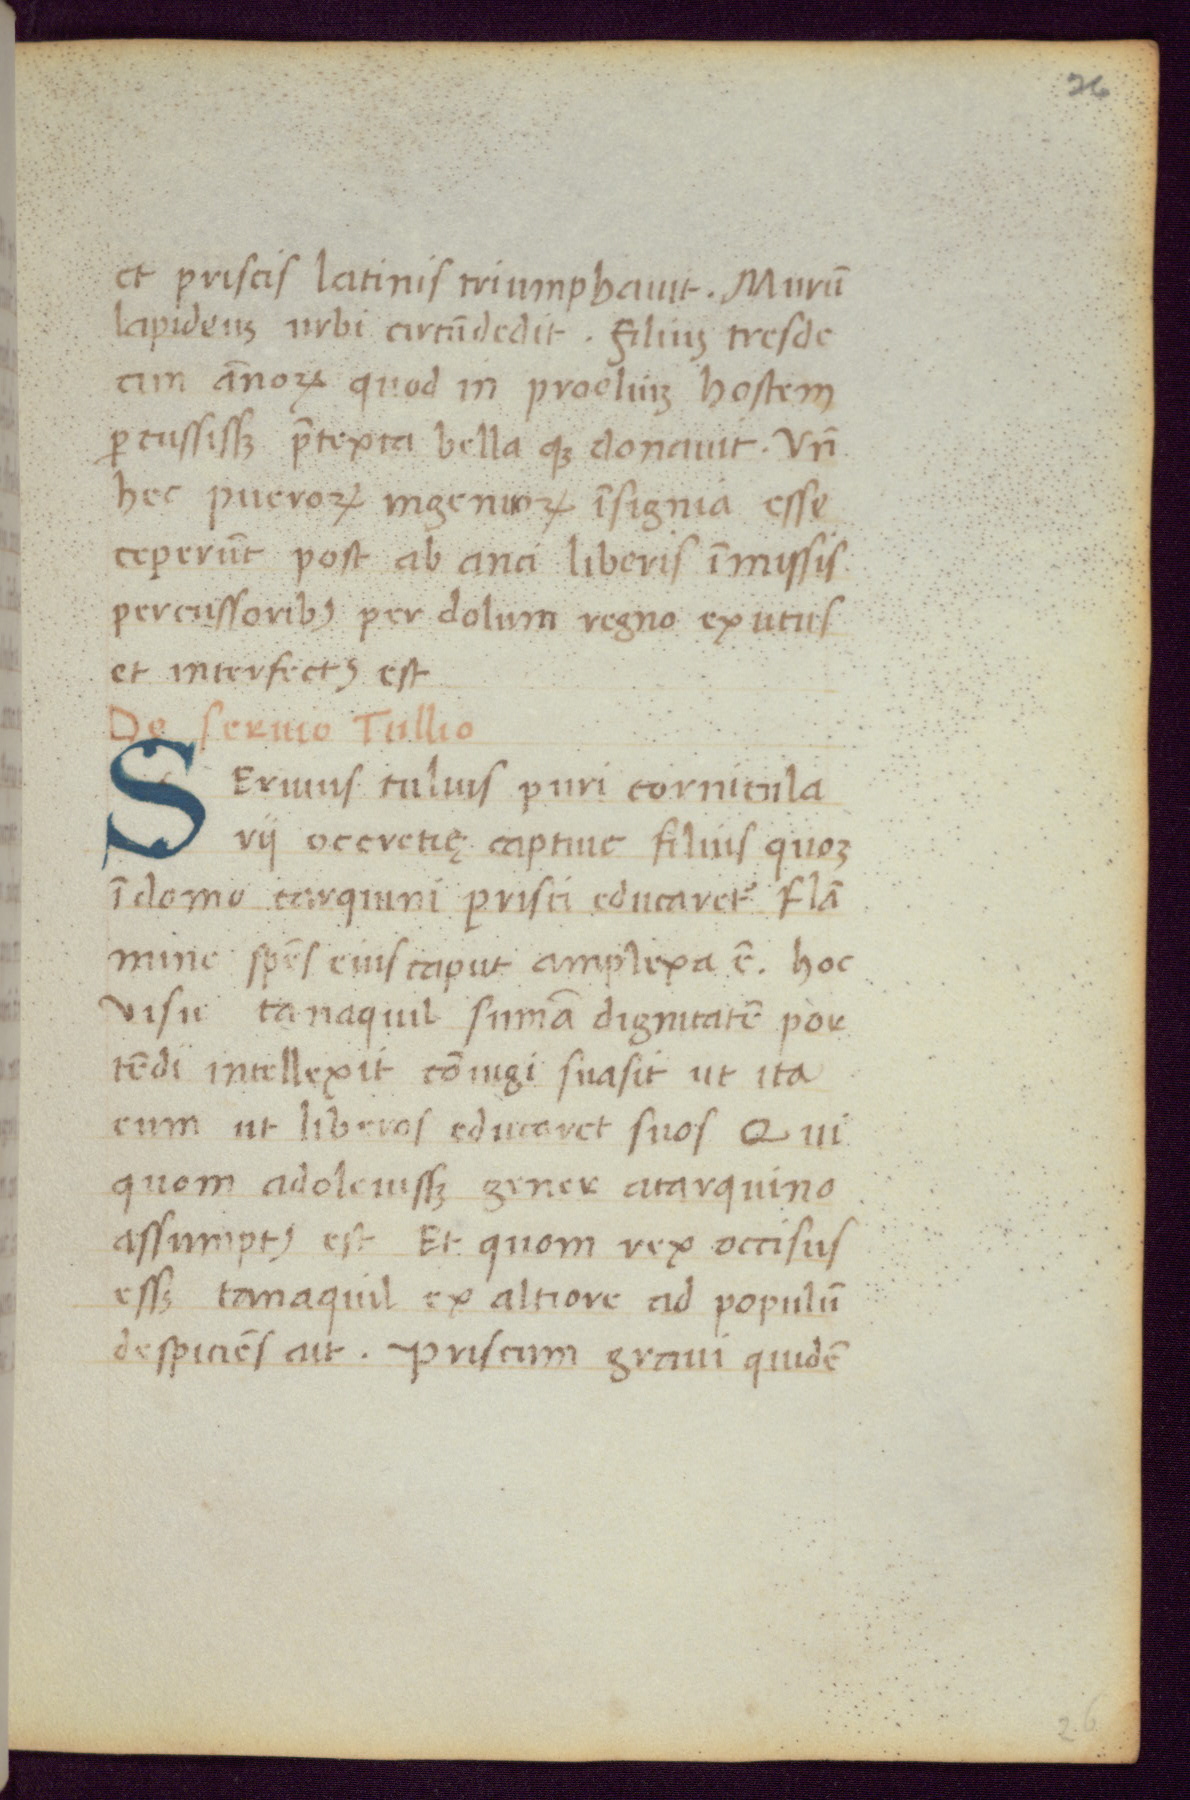 26
et priscis latinis triumphauit. Murū
lapideuꝫ urbi circūdedit. Filiuꝫ tresde
cim ānoꝝ quod in proeliuꝫ hostem
ꝑcussissꝫ p̄texta bella qꝫ donauit. Vn̄
hec pueroꝝ ingenuoꝝ īsignia esse
ceperūt post ab anci liberis īmissis
percussoribꝰ per dolum regno exutus
et interfectꝰ est
De seruio Tullio
SEruius tulius puri cornicula
rij ocretię captiue filius quoꝫ
ī domo tarquini prisci educaret᷑ Flā
mine spēs eius caput amplexa ē. hoc
visu tanaquil sumā dignitatē por
tēdi intellexit cōiugi suasit ut ita
eum ut liberos educaret suos Qui
quom adoleuissꝫ gener atarquino
assumptꝰ est Et quom rex occisus
essꝫ tanaquil ex altiore ad populū
despiciēs ait. Priscum graui quidē
2.6